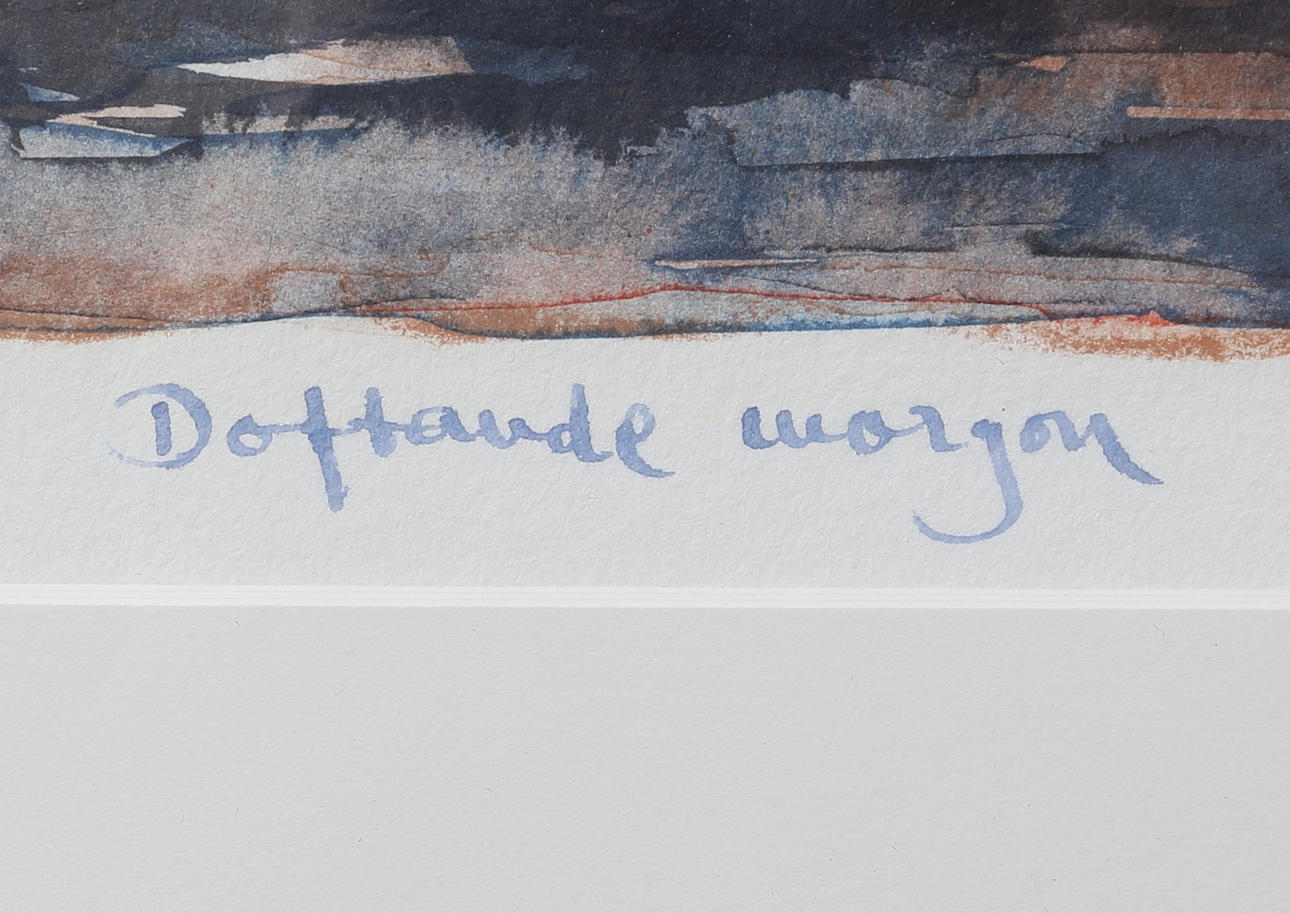 Doftande morgon